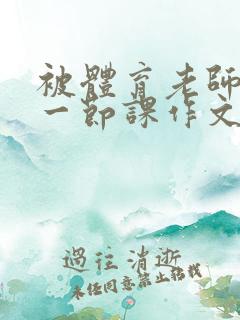 被體育老師
一節課作文
過往消逝
未经同意禁止转载